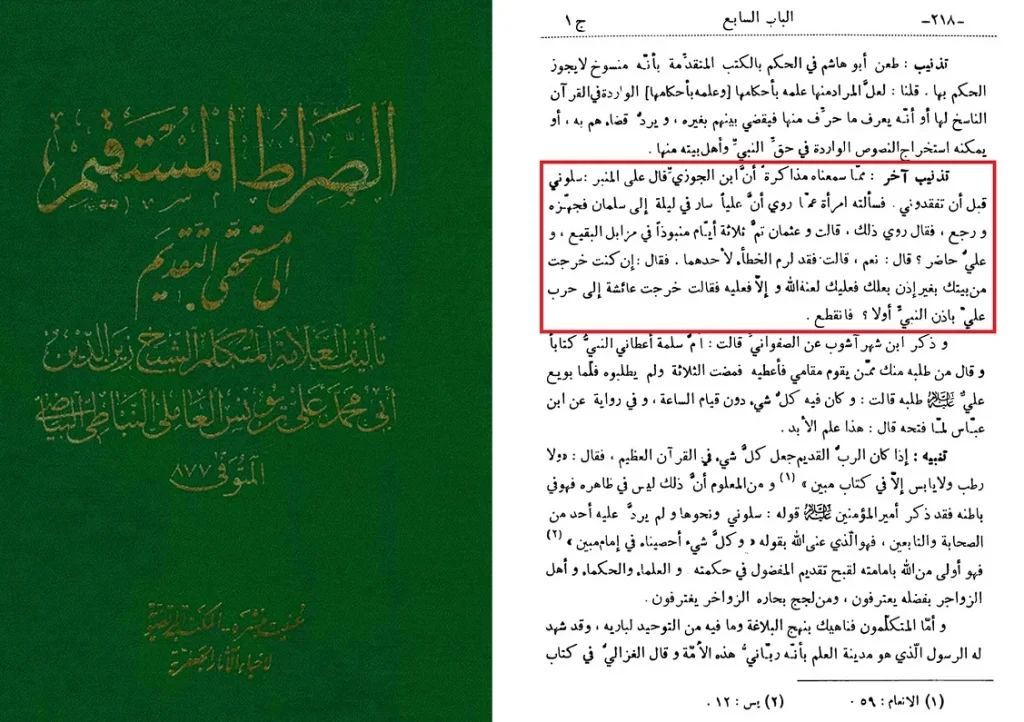 الصراط المستقيم
الى مستحقي التقديم
تأليف العلامة المتكلم الشيخ زين الدين
أبي محمد علي بن يونس العاملي النباطي البياضي
المتوفى ٨٧٧
عنيت بنشره - المكتبة المرتضوية
لاحياء الآثار الجعفرية
-٢١٨- الباب السابع ج ١
تذنيب : طعن أبو هاشم في الحكم بالكتب المتقدّمة بأنّه منسوخ لايجوز
الحكم بها . قلنا : لعلّ المراد منها علمه بأحكامها [وعلمه بأحكامها] الواردة في القرآن
الناسخ لها أو أنّه يعرف ما حرّف منها فيقضي بينهم بغيره ، و يردّ قضاءهم به ، أو
يمكنه استخراج النصوص الواردة في حقّ النبيّ وأهل بيته منها .
تذنيب آخر : ممّا سمعناه مذاكرة أنّ ابن الجوزي قال على المنبر : سلوني
قبل أن تفقدوني . فسألته امرأة عمّا روي أنّ علياً سار في ليلة إلى سلمان فجهّزه
و رجع ، فقال روي ذلك ، قالت و عثمان تمّ ثلاثة أيّام منبوذاً في مزابل البقيع ، و
عليّ حاضر ؟ قال : نعم ، قالت فقد لزم الخطأء لأحدهما . فقال : إن كنت خرجت
من بيتك بغير إذن بعلك فعليك لعنة الله و إلّا فعليه فقالت خرجت عائشة إلى حرب
عليّ باذن النبيّ أولا ؟ فانقطع .
و ذكر ابن شهر آشوب عن الصفوانيّ قالت : اُمّ سلمة أعطاني النبيّ كتاباً
و قال من طلبه منك ممّن يقوم مقامي فأعطيه فمضت الثلاثة ولم يطلبوه فلمّا بويع
عليّ عليه السلام طلبه قالت : و كان فيه كلّ شيء دون قيام الساعة ، و في رواية عن ابن
عبّاس لمّا فتحه قال : هذا علم الأبد .
تنبيه : إذا كان الربّ القديم جعل كلّ شيء في القرآن العظيم ، فقال : «ولا
رطب ولايابس إلّا في كتاب مبين » (١) و من المعلوم أنّ ذلك ليس في ظاهره فهو في
باطنه فقد ذكر أميرالمؤمنين عليه السلام قوله : سلوني ونحوها و لم يردّ عليه أحد من
الصحابة والتابعين ، فهو الّذي عنى الله بقوله « و كلّ شيء أحصيناه في إمام مبين » (٢)
فهو أولى من الله بامامته لقبح تقديم المفضول في حكمته . و العلماء والحكماء و أهل
الزواجر بفضله يعترفون ، ومن لجج بحاره الزواخر يغترفون .
و أمّا المتكلّمون فناهيك بنهج البلاغة وما فيه من التوحيد لباريه ، وقد شهد
له الرسول الّذي هو مدينة العلم بأنّه ربّانيّ هذه الاُمّة و قال الغزاليّ في كتاب
(١) الانعام : ٥٩ . (٢) يس : ١٢ .